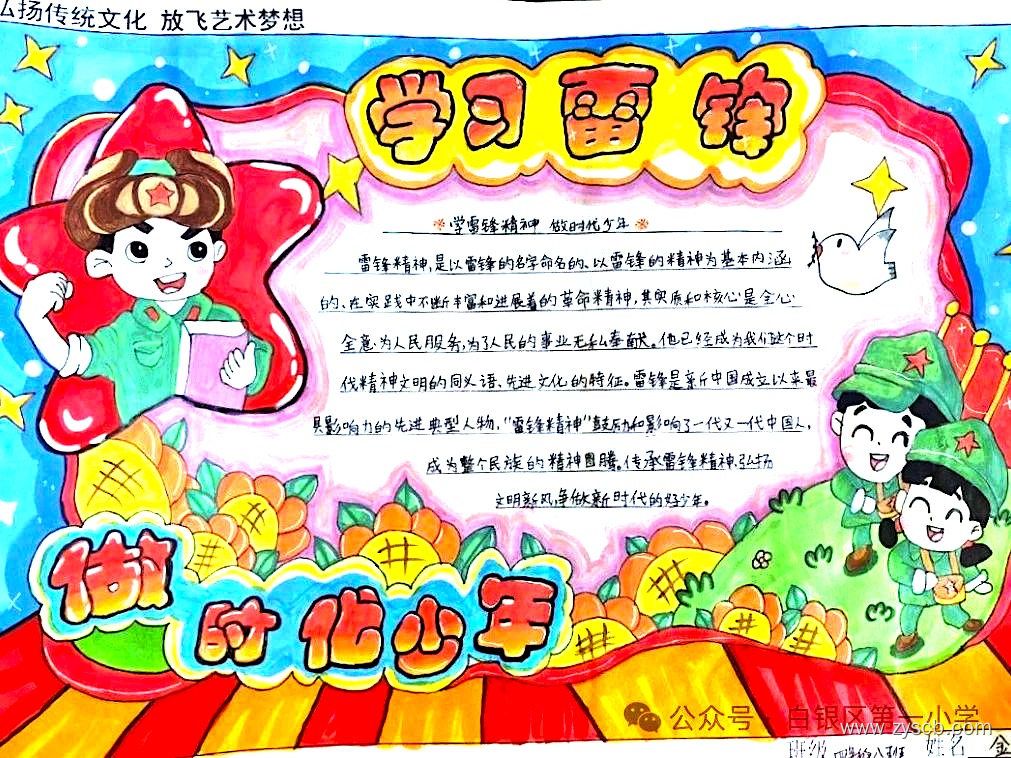 弘扬传统文化 放飞艺术梦想
学习雷锋
学雷锋精神 做时代少年
雷锋精神,是以雷锋的名字命名的、以雷锋的精神为基本内涵
的、在实践中不断丰富和进展着的革命精神,其实质和核心是全心
全意为人民服务,为了人民的事业无私奉献。他已经成为我们这个时
代精神文明的同义语、先进文化的特征。雷锋是新中国成立以来最
具影响力的先进典型人物,“雷锋精神”鼓励和影响了一代又一代中国人,
成为整个民族的精神图腾。传承雷锋精神,弘扬
文明新风,争做新时代的好少年。
做时代少年
公众号·白银区第一小学
www.zyscb.com
班级 四年级八班 姓名 金